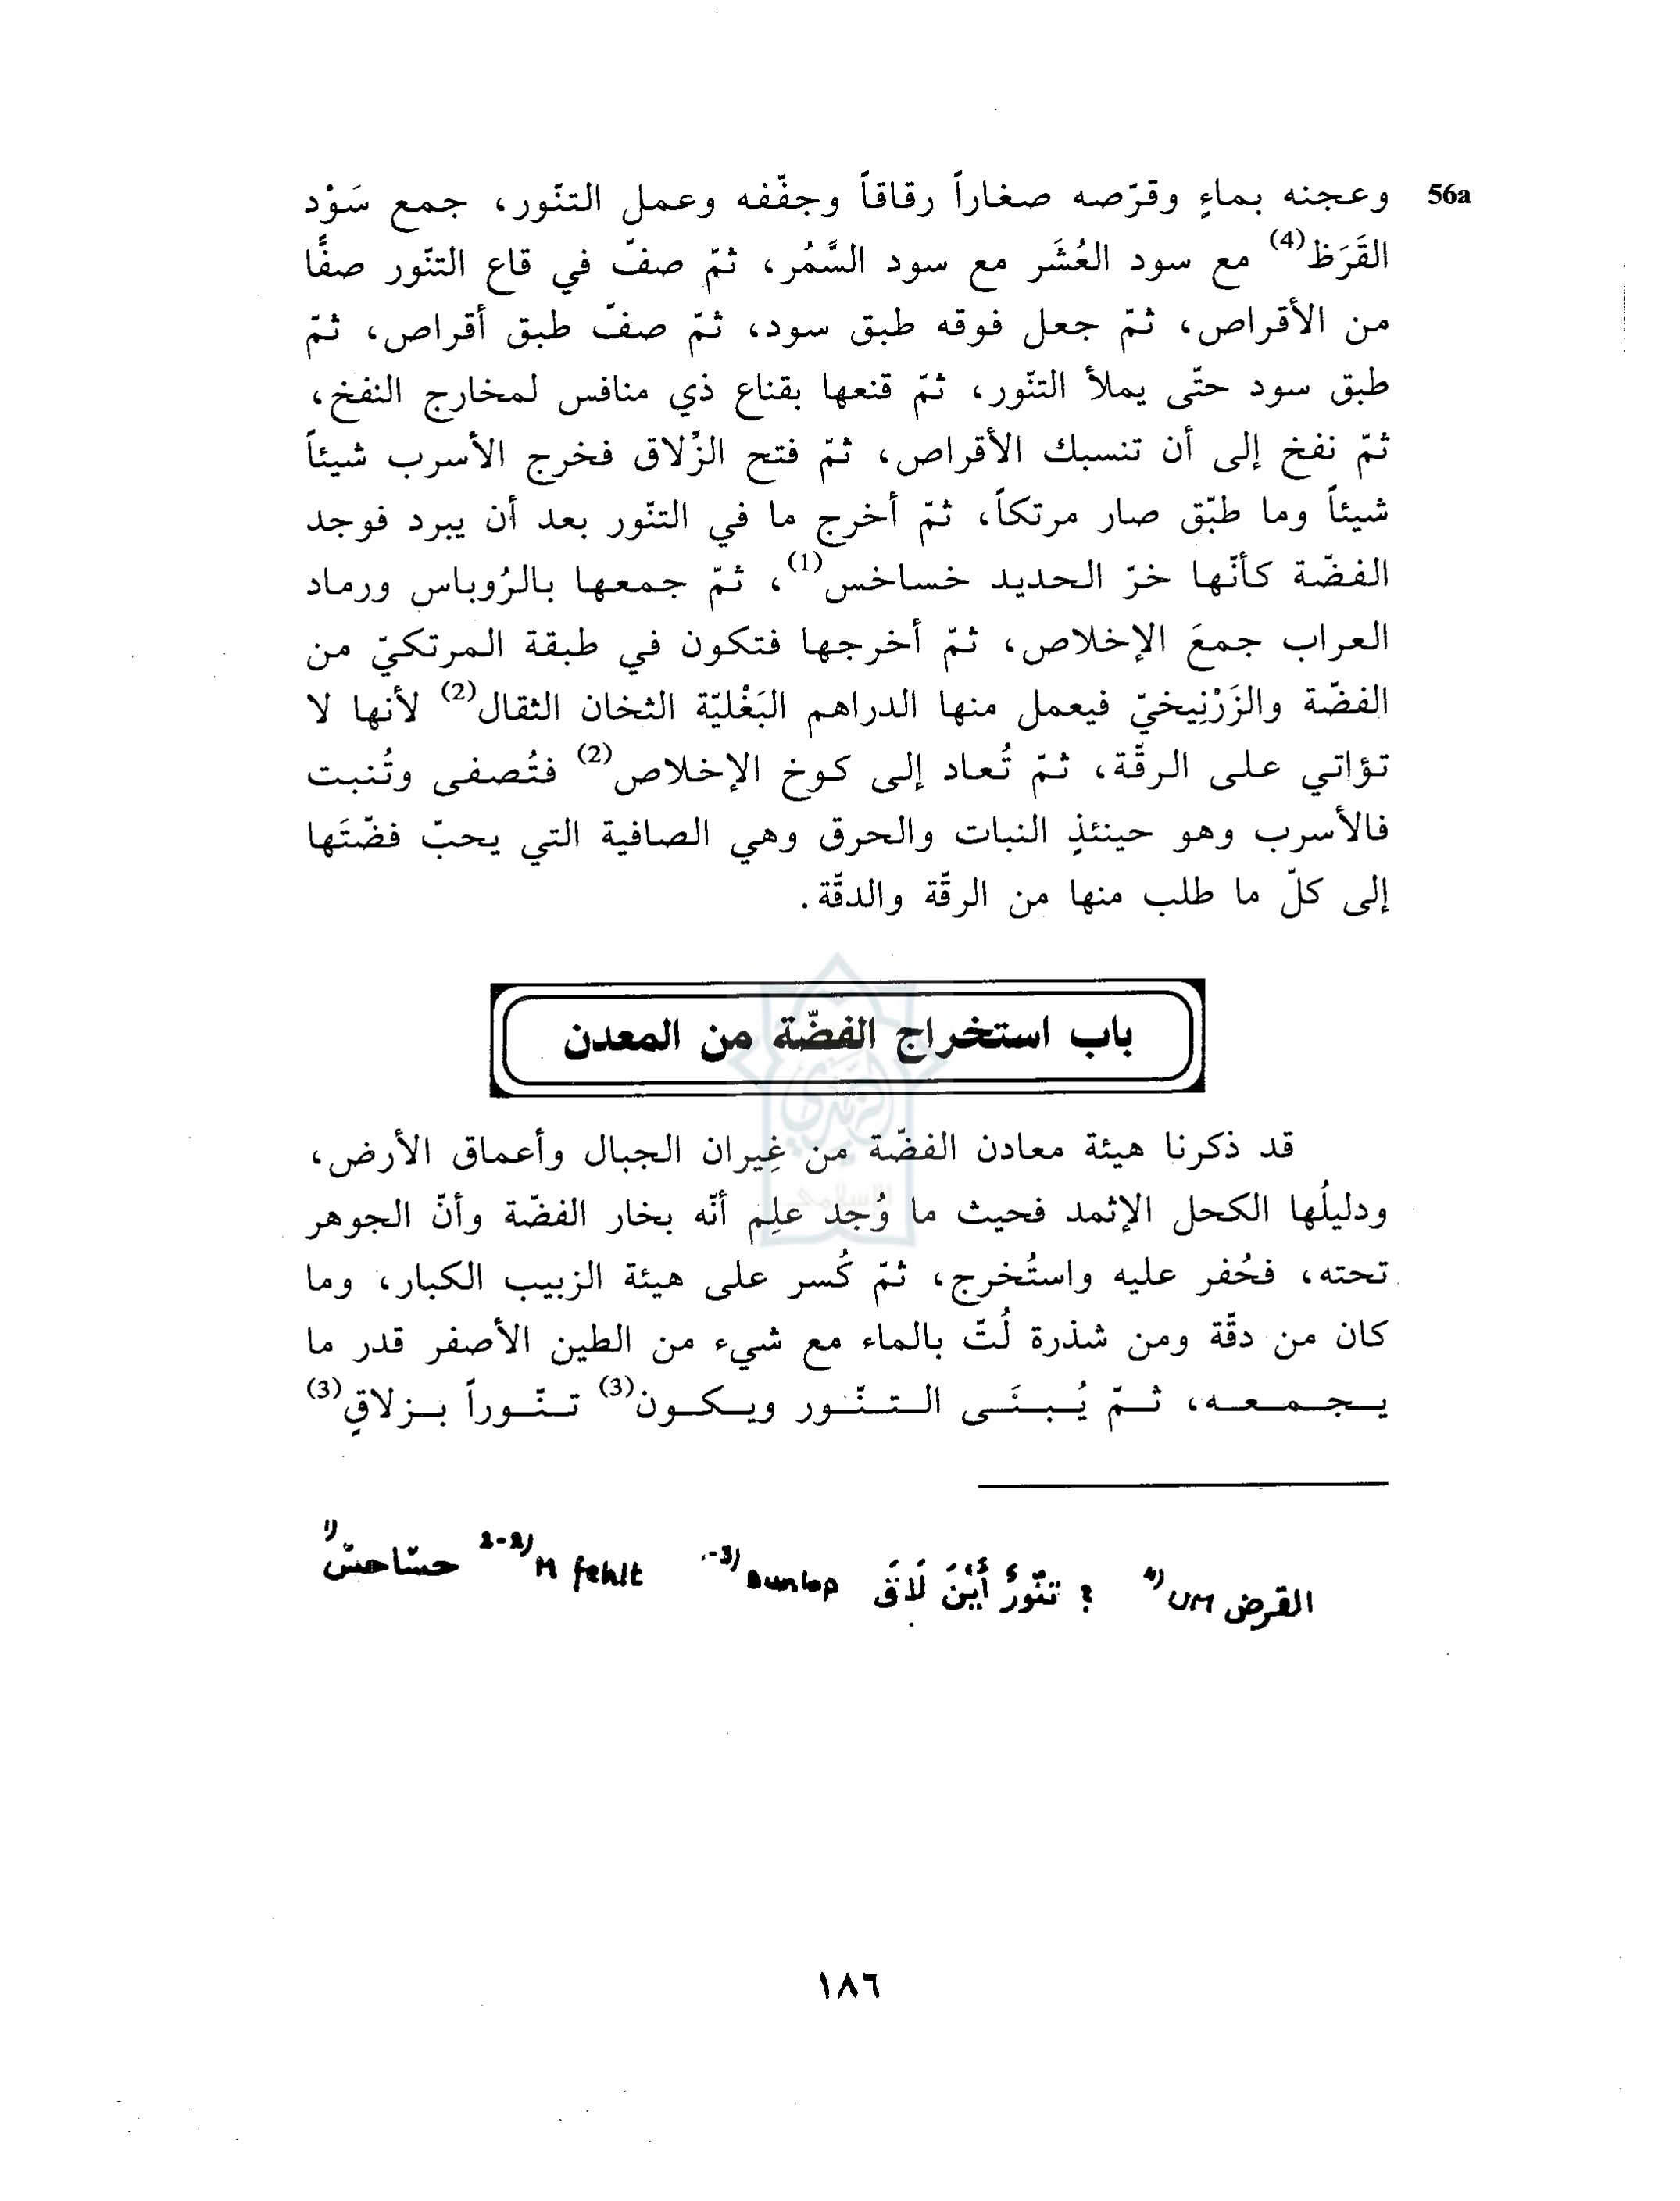 56a
وعجنه بماءٍ وقرّصه صغاراً رقاقاً وجفّفه وعمل التنّور، جمع سَوْد
القَرَظ(4) مع سود العُشَر مع سود السَّمُر، ثمّ صفّ في قاع التنّور صفًّا
من الأقراص، ثمّ جعل فوقه طبق سود، ثمّ صفّ طبق أقراص، ثمّ
طبق سود حتّى يملأ التنّور، ثمّ قنعها بقناع ذي منافس لمخارج النفخ،
ثمّ نفخ إلى أن تنسبك الأقراص، ثمّ فتح الزِّلاق فخرج الأسرب شيئاً
شيئاً وما طبّق صار مرتكاً، ثمّ أخرج ما في التنّور بعد أن يبرد فوجد
الفضّة كأنّها خرّ الحديد خساخس(1)، ثمّ جمعها بالرُوباس ورماد
العراب جمعَ الإخلاص، ثمّ أخرجها فتكون في طبقة المرتكيّ من
الفضّة والزَرْنِيخيّ فيعمل منها الدراهم البَغْليّة الثخان الثقال(2) لأنها لا
تؤاتي على الرقّة، ثمّ تُعاد إلى كوخ الإخلاص(2) فتُصفى وتُنبت
فالأسرب وهو حينئذٍ النبات والحرق وهي الصافية التي يحبّ فضّتَها
إلى كلّ ما طلب منها من الرقّة والدقّة.
باب استخراج الفضّة من المعدن
قد ذكرنا هيئة معادن الفضّة من غِيران الجبال وأعماق الأرض،
ودليلُها الكحل الإثمد فحيث ما وُجد علِم أنّه بخار الفضّة وأنّ الجوهر
تحته، فحُفر عليه واستُخرج، ثمّ كُسر على هيئة الزبيب الكبار، وما
كان من دقّة ومن شذرة لُتّ بالماء مع شيء من الطين الأصفر قدر ما
يجمعه، ثمّ يُبنَى التنّور ويكون(3) تنّوراً بزلاقٍ(3)
1) حسّاحسّ 2-2) M fehlt -3) Dunlop تنّورٌ أَيْنَ لَاقَ ؟ 4) UM القرض
١٨٦